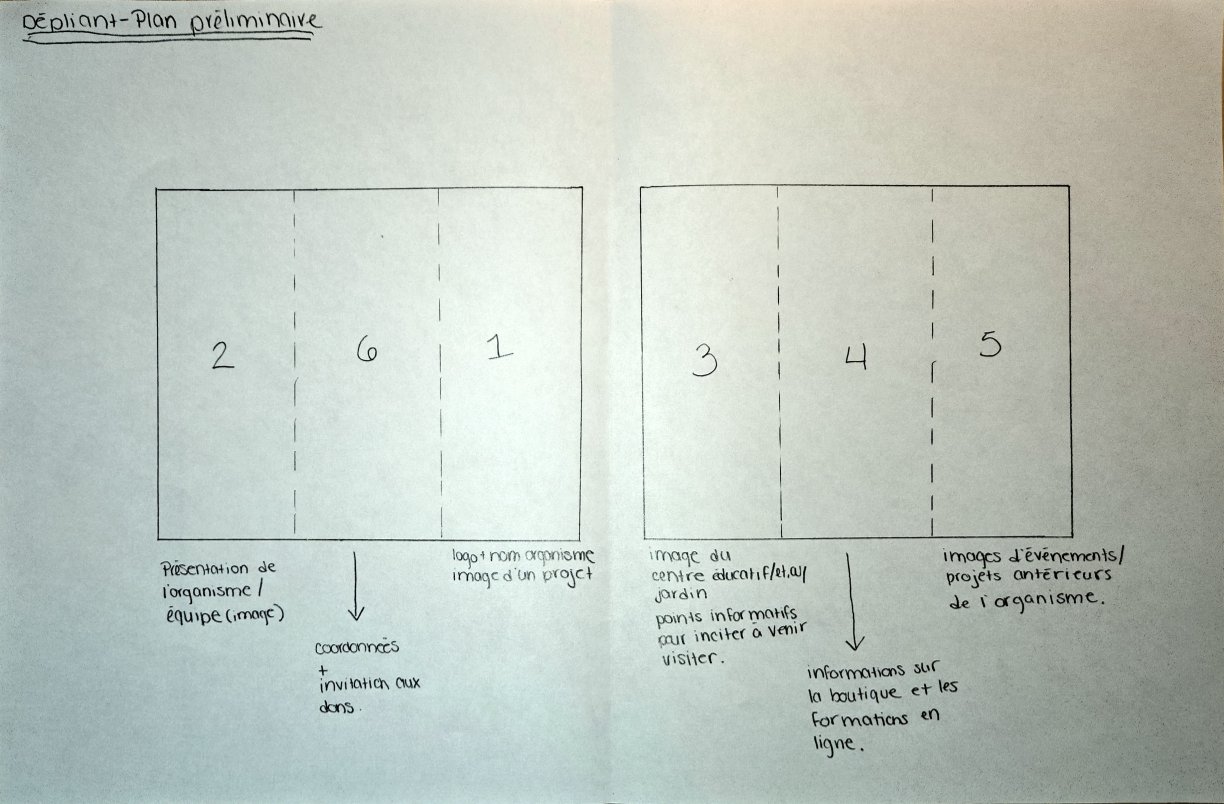 Dépliant-Plan préliminaire
2
6
1
3
4
5
Présentation de
l'organisme /
équipe (image)
coordonnées
+
invitation aux
dons.
logo + nom organisme
image d'un projet
image du
centre éducatif/et
jardin
points informatifs
pour inciter à venir
visiter.
informations sur
la boutique et les
formations en
ligne.
images d'événements/
projets antérieurs
de l'organisme.